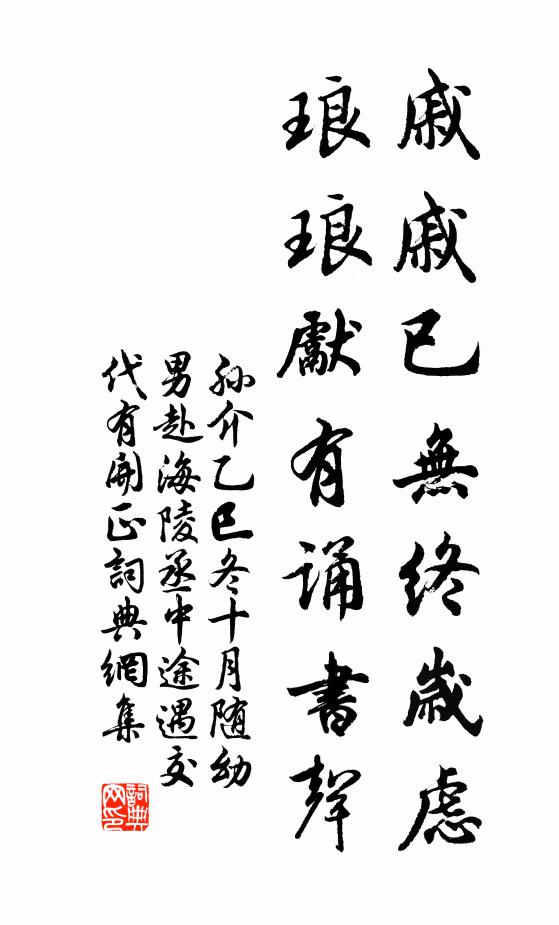 戚戚已無終歲慮
琅琅獻有誦書聲
孫介乙巳冬十月随幼
男赴海陵丞中途遇交
代有開正詞典網集
詞典
网印